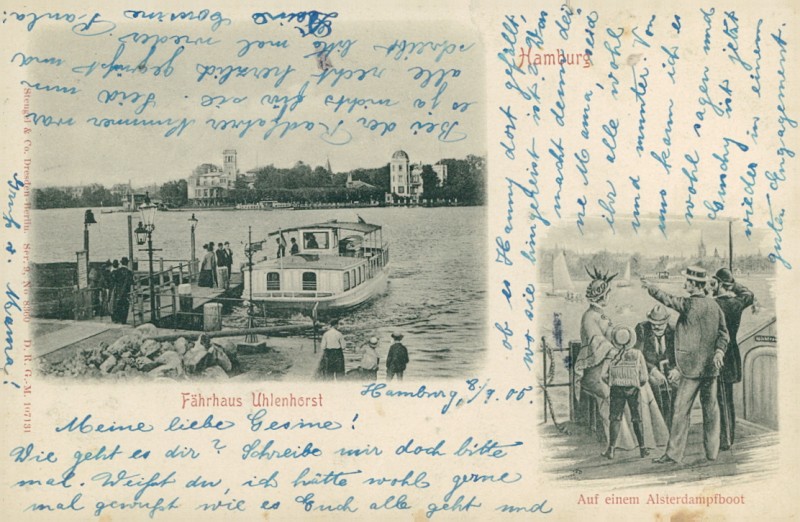 Hamburg
Fährhaus Uhlenhorst
Auf einem Alsterdampfboot
Stengel & Co. Dresden-Berlin. D. R. G.-M. 197131
Hamburg, 8/9. 05.
Meine liebe Gesine!
Wie geht es dir? Schreibe mir doch bitte
mal. Weißt du, ich hätte wohl gerne
mal gewußt wie es Euch alle geht und
ob es Hanny dort gefällt,
wo sie hingereist ist? Was
macht denn dei-
ne Mama, seid
ihr alle wohl
und munter. Von
uns kann ich es
wohl sagen und
ist jetzt
wieder in einem
guten Engagement.
Bei der Radfahrer Nummer war
es ja nichts für sie. Seid nun
alle recht herzlich gegrüßt und
schreibt bitte mal wieder
Cousine Paula!
Gruß v. Mama!